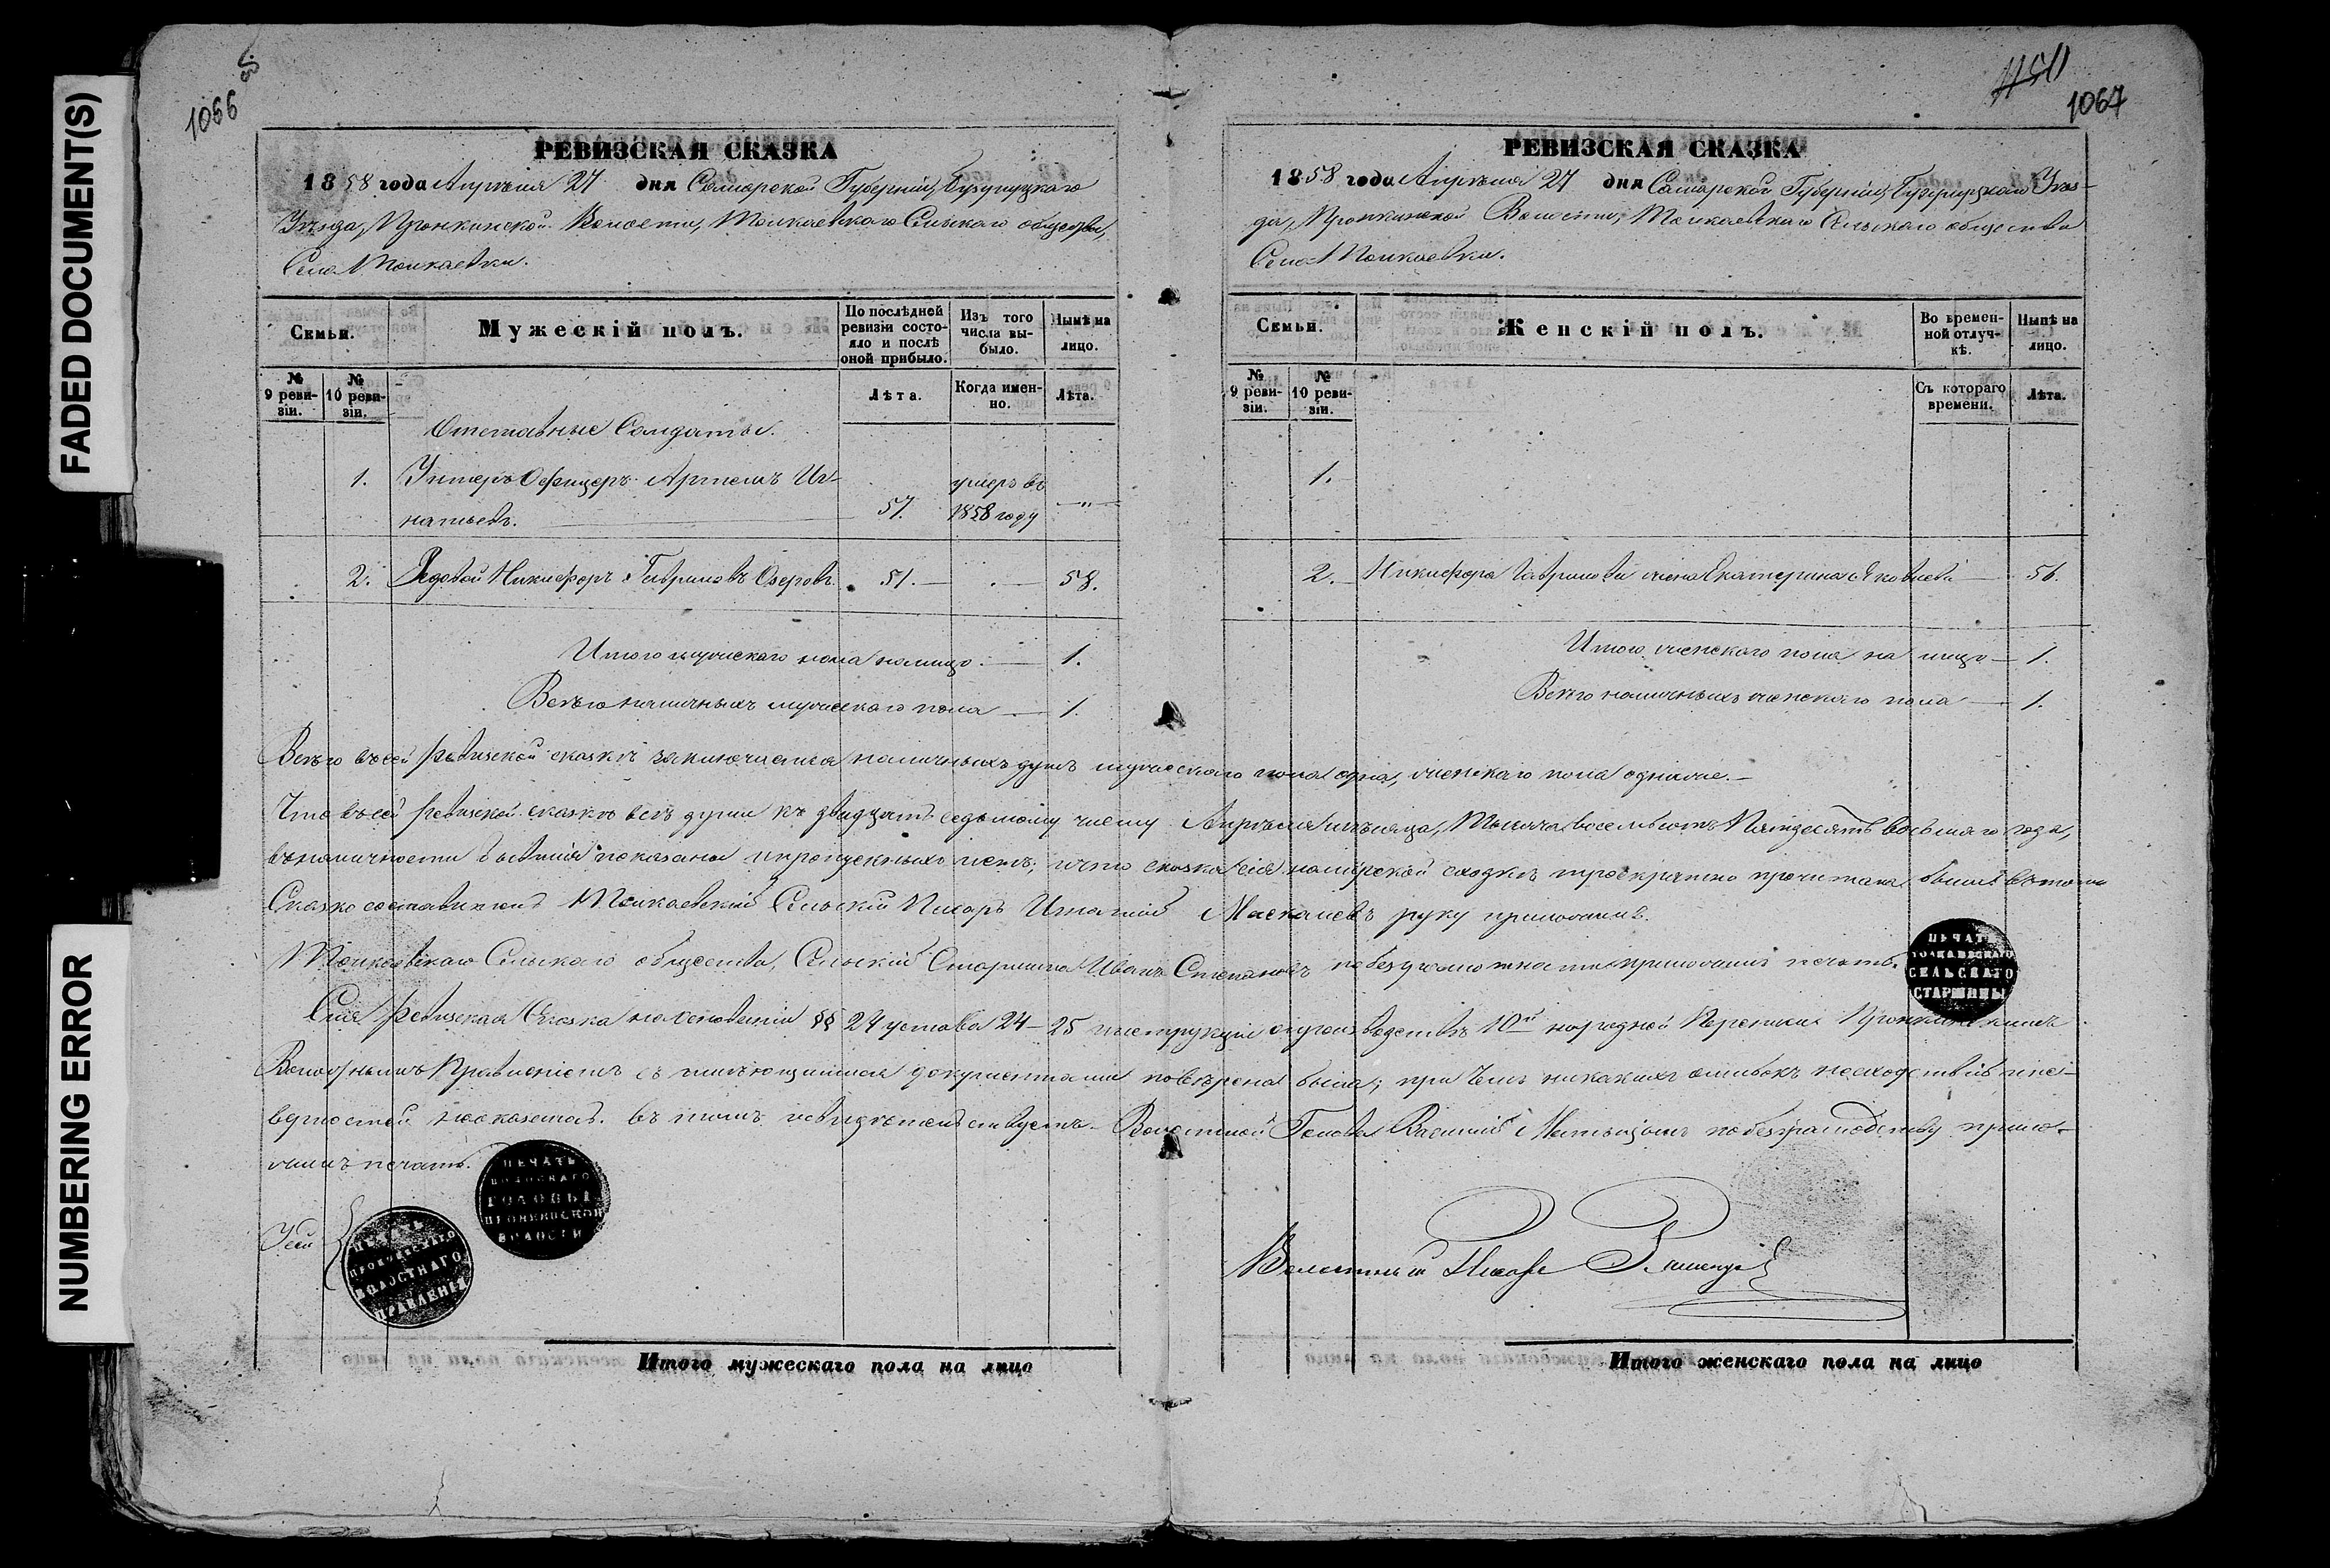 FADED DOCUMENT(S)
NUMBERING ERROR
1066
РЕВИЗСКАЯ СКАЗКА
1858 года Апрѣля 27 дня Самарской Губерніи, Бузулуцкаго
Уѣзда, Пронкинской Волости, Толкаевскаго Сельскаго общества,
Села Толкаевки.
Семьи.
Мужескій полъ.
По послѣдней ревизіи состояло и послѣ оной прибыло.
Изъ того числа выбыло.
Нынѣ на лицо.
№ 9 ревизіи.
№ 10 ревизіи.
Лѣта.
Когда именно.
Лѣта.
Отставные Солдаты.
1. Унтеръ Офицеръ Артемъ Иг- умеръ въ
натьевъ. 57. 1858 году "
2. Рядовой Никифоръ Гавриловъ Озеровъ 51. 58.
Итого мужескаго пола на лицо 1.
Всего наличныхъ мужескаго пола 1.
1067
РЕВИЗСКАЯ СКАЗКА
1858 года Апрѣля 27 дня Самарской Губерніи, Бузулуцкаго Уѣз-
да, Пронкинской Волости, Толкаевскаго Сельскаго общества
Села Толкаевки.
Семьи.
Женскій полъ.
Во временной отлучкѣ.
Нынѣ на лицо.
№ 9 ревизіи.
№ 10 ревизіи.
Съ котораго времени.
Лѣта.
1.
2. Никифора Гаврилова жена Екатерина Яковлева 56.
Итого женскаго пола на лицо 1.
Всего наличныхъ женскаго пола 1.
Всего въ сей ревизской сказкѣ заключается наличныхъ душъ мужескаго пола одна, женскаго пола одна же.
Что въ сей ревизской сказкѣ всѣ души къ двадцать седьмому числу Апрѣля мѣсяца, Тысяча восемьсотъ Пятдесятъ восьмаго года,
въ наличности бывшія показаны и пропускныхъ нетъ; и что сказка сія на мірской сходкѣ троекратно прочитана была въ томъ
Сказко составитель Толкаевскій Сельскій Писарь Игнатій Маскалевъ руку приложилъ.
Толкаевскаго Сельскаго общества, Сельскій Старшина Иванъ Степановъ по безграмотности приложилъ печать.
ПЕЧАТЬ ТОЛКАЕВСКАГО СЕЛЬСКАГО СТАРШИНЫ
Сія ревизская Сказка на основаніи §§ 24 устава 24-25 инструкціи о производствѣ 10й народной Переписи Пронкинскимъ
Волостнымъ Правленіемъ съ имѣющимися документами повѣрена была; при чемъ никакихъ ошибокъ несходствъ и не-
верностей не оказалось. въ томъ и свидѣтельствуетъ. Волостной Голова Василій по безграмотству прило-
жилъ печать.
ПЕЧАТЬ ВОЛОСТНАГО ГОЛОВЫ ПРОНКИНСКОЙ ВОЛОСТИ
ПЕЧАТЬ ПРОНКИНСКАГО ВОЛОСТНАГО ПРАВЛЕНІЯ
Волостный Писарь
Итого мужескаго пола на лицо
Итого женскаго пола на лицо